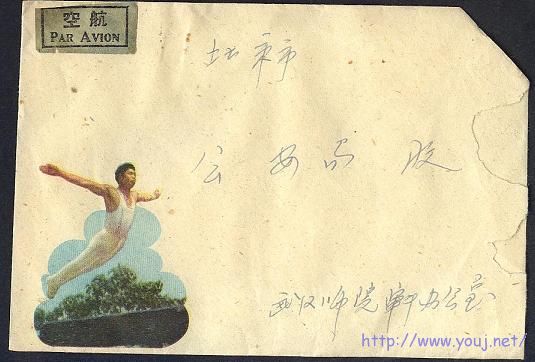 空航
PAR AVION
北京市
公安局 收
武汉师院革办公室
http://www.youj.net/